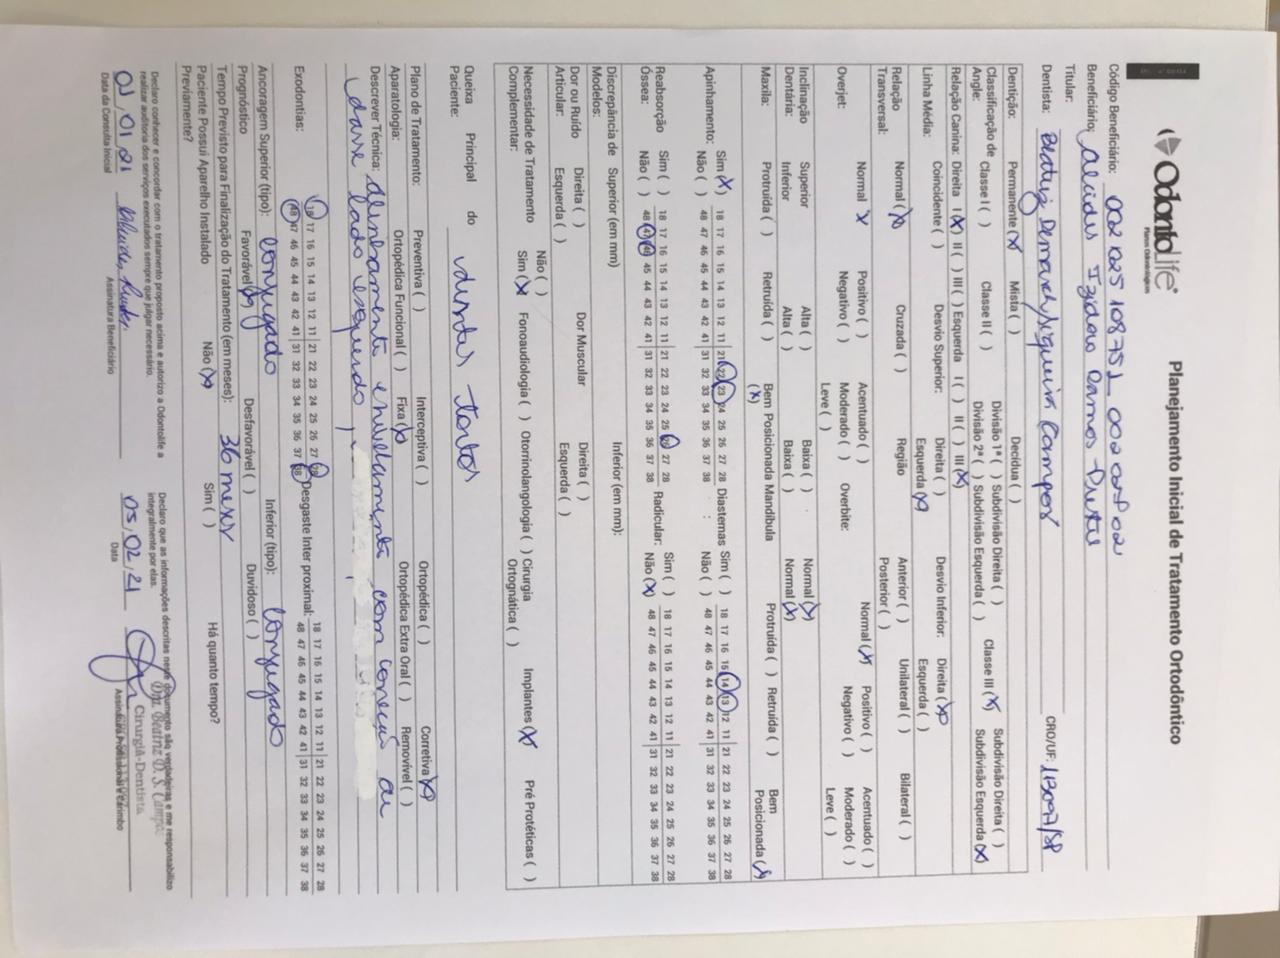 OdontoLife®
Planos Odontológicos
Planejamento Inicial de Tratamento Ortodôntico
Código Beneficiário:
Beneficiário: Alcides Izidoro Ramos
Titular:
Dentista: Beatriz Demarchi Siqueira Campos CRO/UF:
Dentição: Permanente (x) Mista ( ) Decídua ( )
Classificação de Angle: Classe I ( ) Classe II ( ) Divisão 1ª ( ) Subdivisão Direita ( ) Divisão 2ª ( ) Subdivisão Esquerda ( ) Classe III (x) Subdivisão Direita ( ) Subdivisão Esquerda (x)
Relação Canina: Direita I (x) II ( ) III ( ) Esquerda I ( ) II ( ) III (x)
Linha Média: Coincidente ( ) Desvio Superior: Direita ( ) Esquerda (x) Desvio Inferior: Direita (x) Esquerda ( )
Relação Transversal: Normal (x) Cruzada ( ) Região Anterior ( ) Posterior ( ) Unilateral ( ) Bilateral ( )
Overjet: Normal x Positivo ( ) Negativo ( ) Acentuado ( ) Moderado ( ) Leve ( ) Overbite: Normal (x Positivo ( ) Negativo ( ) Acentuado ( ) Moderado ( ) Leve ( )
Inclinação Dentária: Superior Alta ( ) Baixa ( ) Normal (x)
Inferior Alta ( ) Baixa ( ) Normal (x)
Maxila: Protruída ( ) Retruída ( ) Bem Posicionada (x) Mandíbula Protruída ( ) Retruída ( ) Bem Posicionada (x)
Apinhamento: Sim (x) Não ( ) 18 17 16 15 14 13 12 11 | 21 22 23 24 25 26 27 28 Diastemas Sim ( ) Não ( ) 18 17 16 15 14 13 12 11 | 21 22 23 24 25 26 27 28
48 47 46 45 44 43 42 41 | 31 32 33 34 35 36 37 38 48 47 46 45 44 43 42 41 | 31 32 33 34 35 36 37 38
Reabsorção Óssea: Sim ( ) Não ( ) 18 17 16 15 14 13 12 11 | 21 22 23 24 25 26 27 28 Radicular: Sim ( ) Não (x) 18 17 16 15 14 13 12 11 | 21 22 23 24 25 26 27 28
48 47 46 45 44 43 42 41 | 31 32 33 34 35 36 37 38 48 47 46 45 44 43 42 41 | 31 32 33 34 35 36 37 38
Discrepância de Modelos: Superior (em mm) Inferior (em mm):
Dor ou Ruído Articular: Direita ( ) Esquerda ( ) Dor Muscular Direita ( ) Esquerda ( )
Necessidade de Tratamento Complementar: Não ( ) Sim (x) Fonoaudiologia ( ) Otorrinolangologia ( ) Cirurgia Ortognática ( ) Implantes (x) Pré Protéticas ( )
Queixa Principal do Paciente: dentes tortos
Plano de Tratamento: Preventiva ( ) Interceptiva ( ) Ortopédica ( ) Corretiva (x)
Aparatologia: Ortopédica Funcional ( ) Fixa (x) Ortopédica Extra Oral ( ) Removível ( )
Descrever Técnica: alinhamento e nivelamento com correção da
classe lado esquerdo
Exodontias: 18 17 16 15 14 13 12 11 | 21 22 23 24 25 26 27 28 Desgaste Inter proximal: 18 17 16 15 14 13 12 11 | 21 22 23 24 25 26 27 28
48 47 46 45 44 43 42 41 | 31 32 33 34 35 36 37 38 48 47 46 45 44 43 42 41 | 31 32 33 34 35 36 37 38
Ancoragem Superior (tipo): conjugado Inferior (tipo): conjugado
Prognóstico Favorável (x) Desfavorável ( ) Duvidoso ( )
Tempo Previsto para Finalização do Tratamento (em meses): 36 meses
Paciente Possui Aparelho Instalado Previamente? Não (x) Sim ( ) Há quanto tempo?
Declaro conhecer e concordar com o tratamento proposto acima e autorizo a Odontolife a realizar auditoria dos serviços executados sempre que julgar necessário.
Declaro que as informações descritas neste documento são verdadeiras e me responsabilizo integralmente por elas.
Data da Consulta Inicial
Assinatura Beneficiário
05, 02, 21
Data
Dra. Beatriz D. S. Campos
Cirurgiã-Dentista
Assinatura Profissional e Carimbo